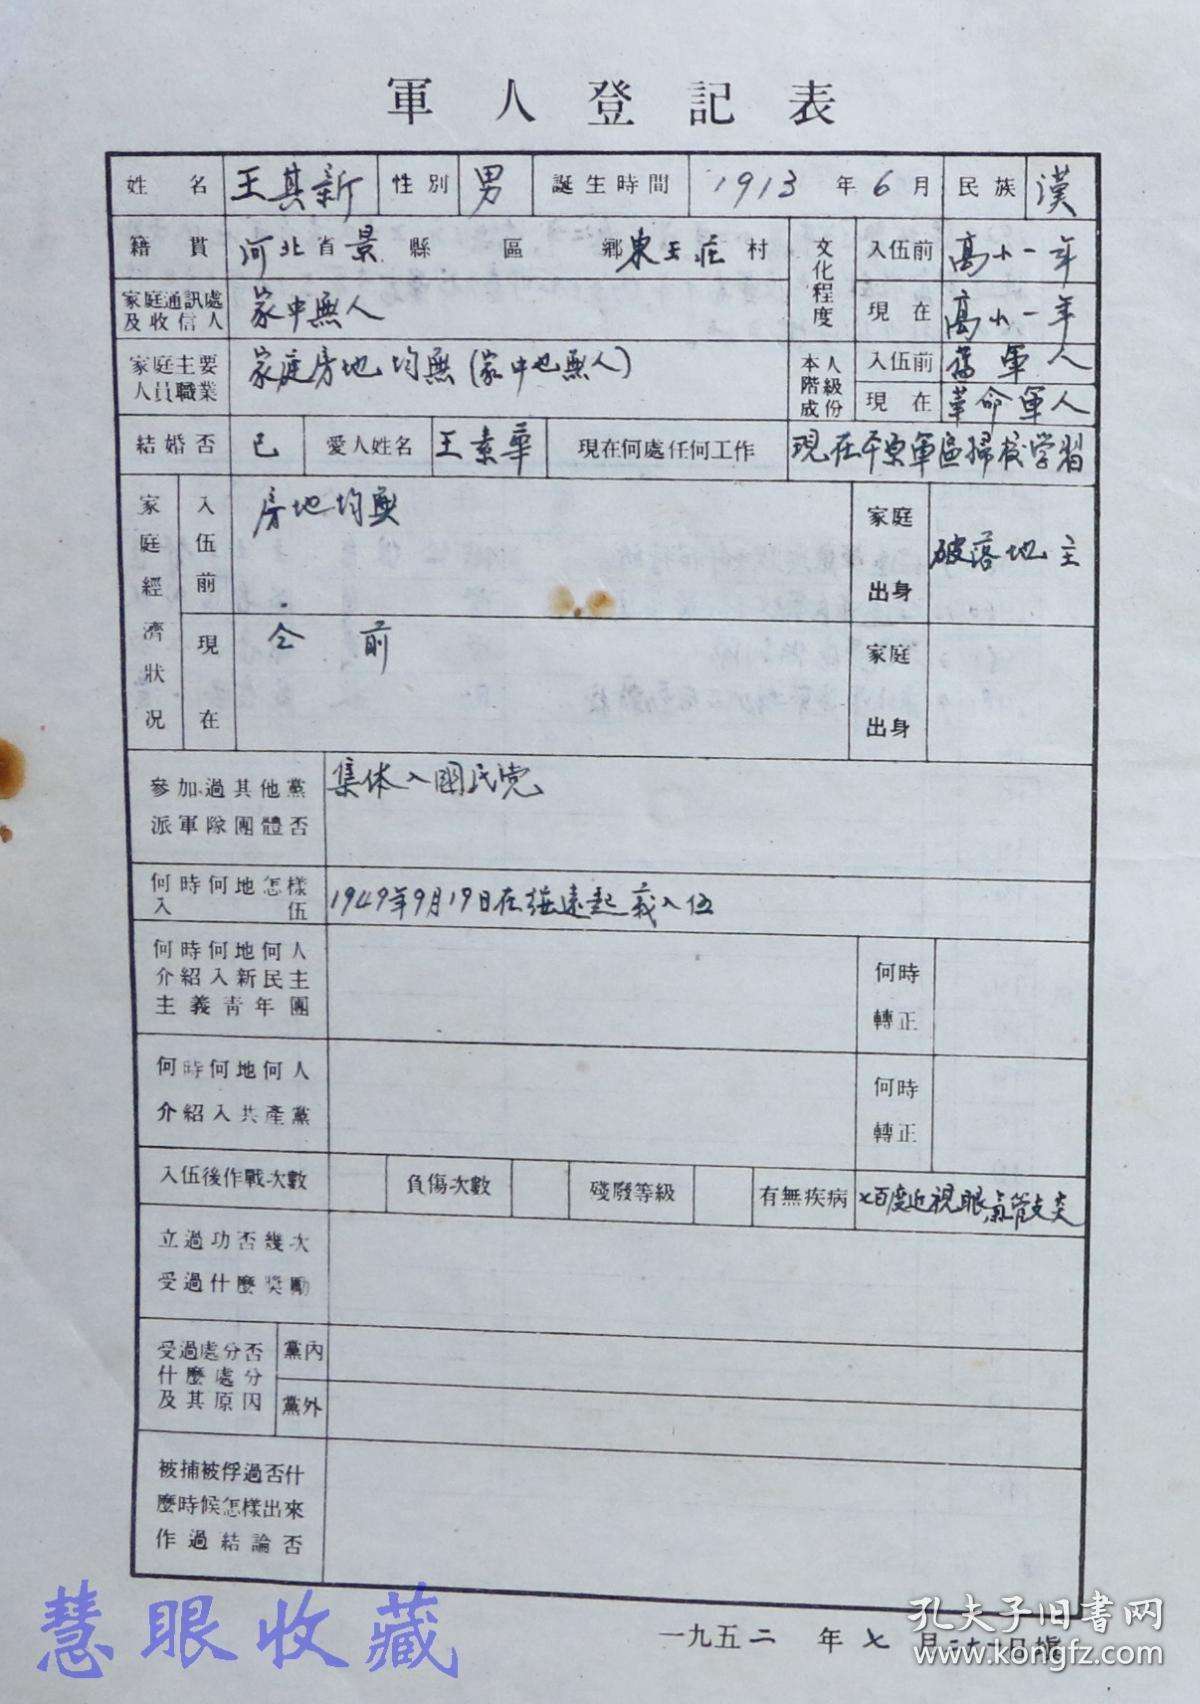 軍人登記表
姓名 王其新 性别 男 誕生時間 1913年6月 民族 漢
籍貫 河北省景縣 區 鄉東王莊村 文化程度 入伍前 高小一年
家庭通訊處及收信人 家中無人 現在 高小一年
家庭主要人員職業 家庭房地均無(家中也無人) 本人階級成份 入伍前 舊軍人
現在 革命軍人
結婚否 已 愛人姓名 王素華 現在何處任何工作 現在平原軍區婦校学習
家庭經濟狀况 入伍前 房地均無 家庭出身 破落地主
現在 仝前 家庭出身
參加過其他黨
派軍隊團體否
集体入國民党
何時何地怎樣
入伍
1949年9月19日在綏遠起義入伍
何時何地何人
介紹入新民主
主義青年團
何時
轉正
何時何地何人
介紹入共產黨
何時
轉正
入伍後作戰次數 負傷次數 殘廢等級 有無疾病 七百度近視眼氣管支炎
立過功否幾次
受過什麼獎勵
受過處分否
什麼處分
及其原因
黨内
黨外
被捕被俘過否什
麼時候怎樣出來
作過結論否
一九五二年七月二十一日填
慧眼收藏
孔夫子旧书网
www.kongfz.com